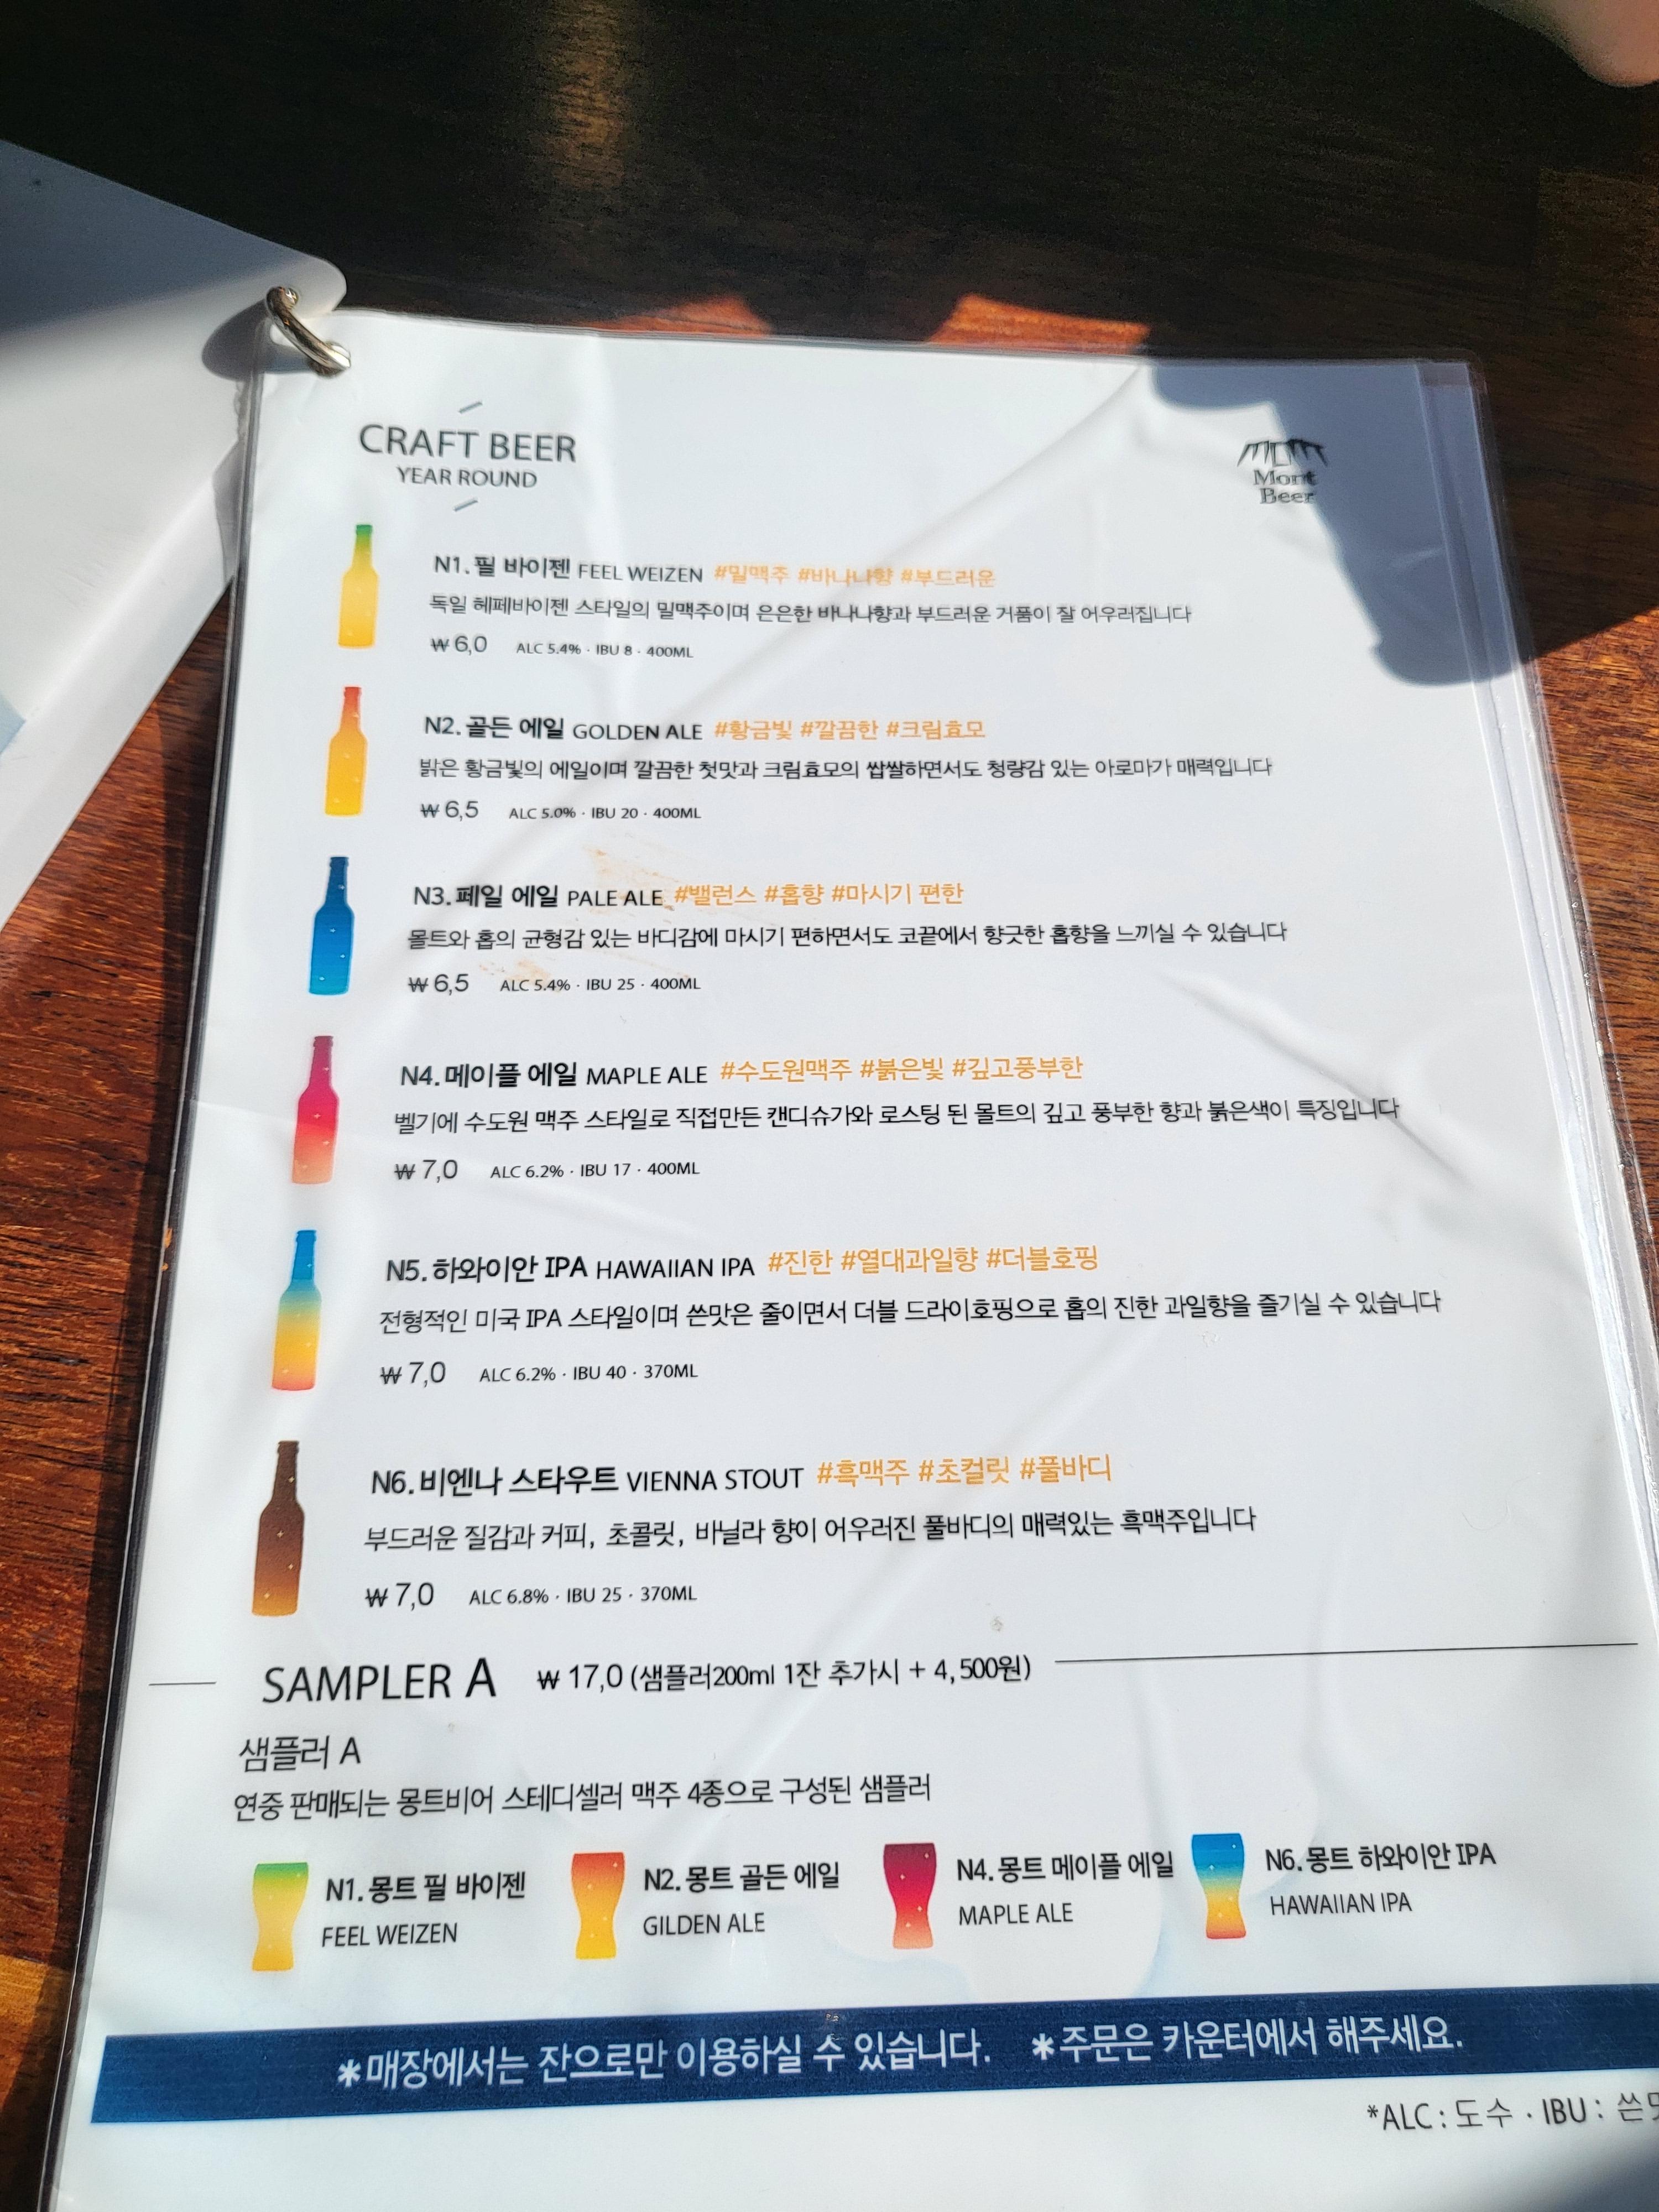 CRAFT BEER
YEAR ROUND
Mont
Beer
N1. 필 바이젠 FEEL WEIZEN #밀맥주 #바나나향 #부드러운
독일 헤페바이젠 스타일의 밀맥주이며 은은한 바나나향과 부드러운 거품이 잘 어우러집니다
₩ 6,0 ALC 5.4% · IBU 8 · 400ML
N2. 골든 에일 GOLDEN ALE #황금빛 #깔끔한 #크림효모
밝은 황금빛의 에일이며 깔끔한 첫맛과 크림효모의 쌉쌀하면서도 청량감 있는 아로마가 매력입니다
₩ 6,5 ALC 5.0% · IBU 20 · 400ML
N3. 페일 에일 PALE ALE #밸런스 #홉향 #마시기 편한
몰트와 홉의 균형감 있는 바디감에 마시기 편하면서도 코끝에서 향긋한 홉향을 느끼실 수 있습니다
₩ 6,5 ALC 5.4% · IBU 25 · 400ML
N4. 메이플 에일 MAPLE ALE #수도원맥주 #붉은빛 #깊고풍부한
벨기에 수도원 맥주 스타일로 직접만든 캔디슈가와 로스팅 된 몰트의 깊고 풍부한 향과 붉은색이 특징입니다
₩ 7,0 ALC 6.2% · IBU 17 · 400ML
N5. 하와이안 IPA HAWAIIAN IPA #진한 #열대과일향 #더블호핑
전형적인 미국 IPA 스타일이며 쓴맛은 줄이면서 더블 드라이호핑으로 홉의 진한 과일향을 즐기실 수 있습니다
₩ 7,0 ALC 6.2% · IBU 40 · 370ML
N6. 비엔나 스타우트 VIENNA STOUT #흑맥주 #초컬릿 #풀바디
부드러운 질감과 커피, 초콜릿, 바닐라 향이 어우러진 풀바디의 매력있는 흑맥주입니다
₩ 7,0 ALC 6.8% · IBU 25 · 370ML
SAMPLER A ₩ 17,0 (샘플러200ml 1잔 추가시 + 4,500원)
샘플러 A
연중 판매되는 몽트비어 스테디셀러 맥주 4종으로 구성된 샘플러
N1. 몽트 필 바이젠 N2. 몽트 골든 에일 N4. 몽트 메이플 에일 N6. 몽트 하와이안 IPA
FEEL WEIZEN GILDEN ALE MAPLE ALE HAWAIIAN IPA
*매장에서는 잔으로만 이용하실 수 있습니다. *주문은 카운터에서 해주세요.
*ALC : 도수 · IBU : 쓴